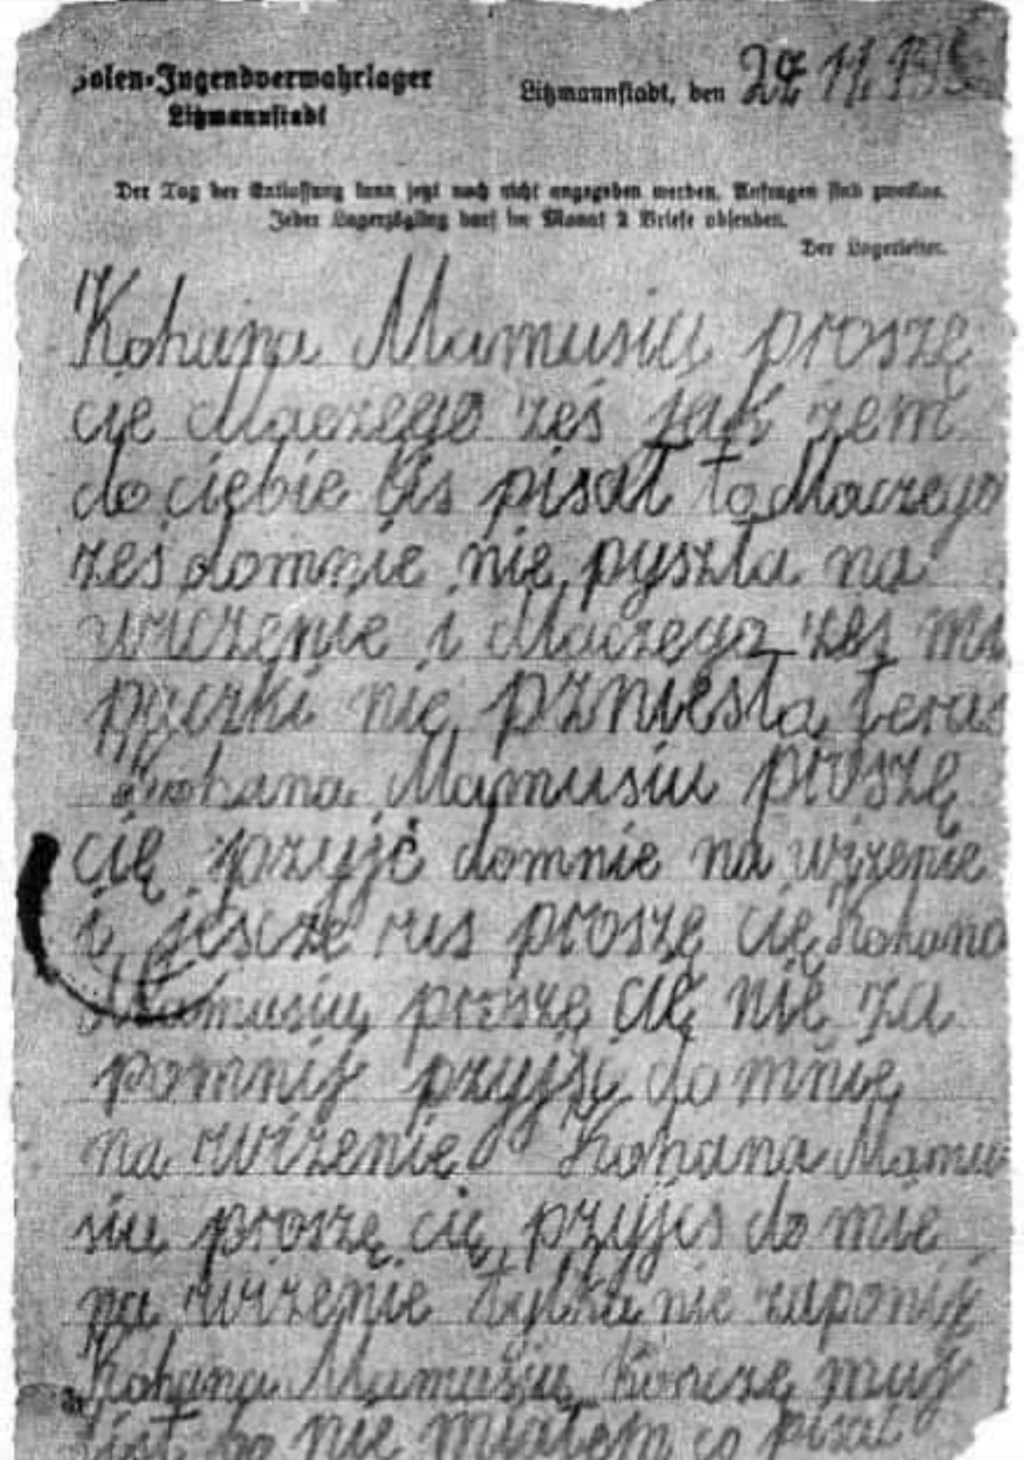 Polen-Jugendverwahrlager
Litzmannstadt
Litzmannstadt, den 27 11
Der Tag der Entlassung kann jetzt noch nicht angegeben werden. Anfragen sind zwecklos.
Jeder Lagerzögling darf im Monat 2 Briefe absenden.
Der Lagerleiter.
Kohana Mamusiu proszę
cię dlaczego żeś jak żem
do ciebie lis pisał to dlaczego
żeś domnie nie pyszła na
i dlaczego żeś mi
paczki nie pzniesła teras
Kohana Mamusiu proszę
cię przyjć domnie na wizenie
i jescze ras proszę cię Kohana
Mamusiu proszę cię nie za
pomnij przyjśi do mnie
na wizenie Kohana Mamu
siu proszę cię przyjcs do mie
na wizenie tylko nie zaponij
Kohana Mamusiu koncze muj
list bo nie miałem co pisać